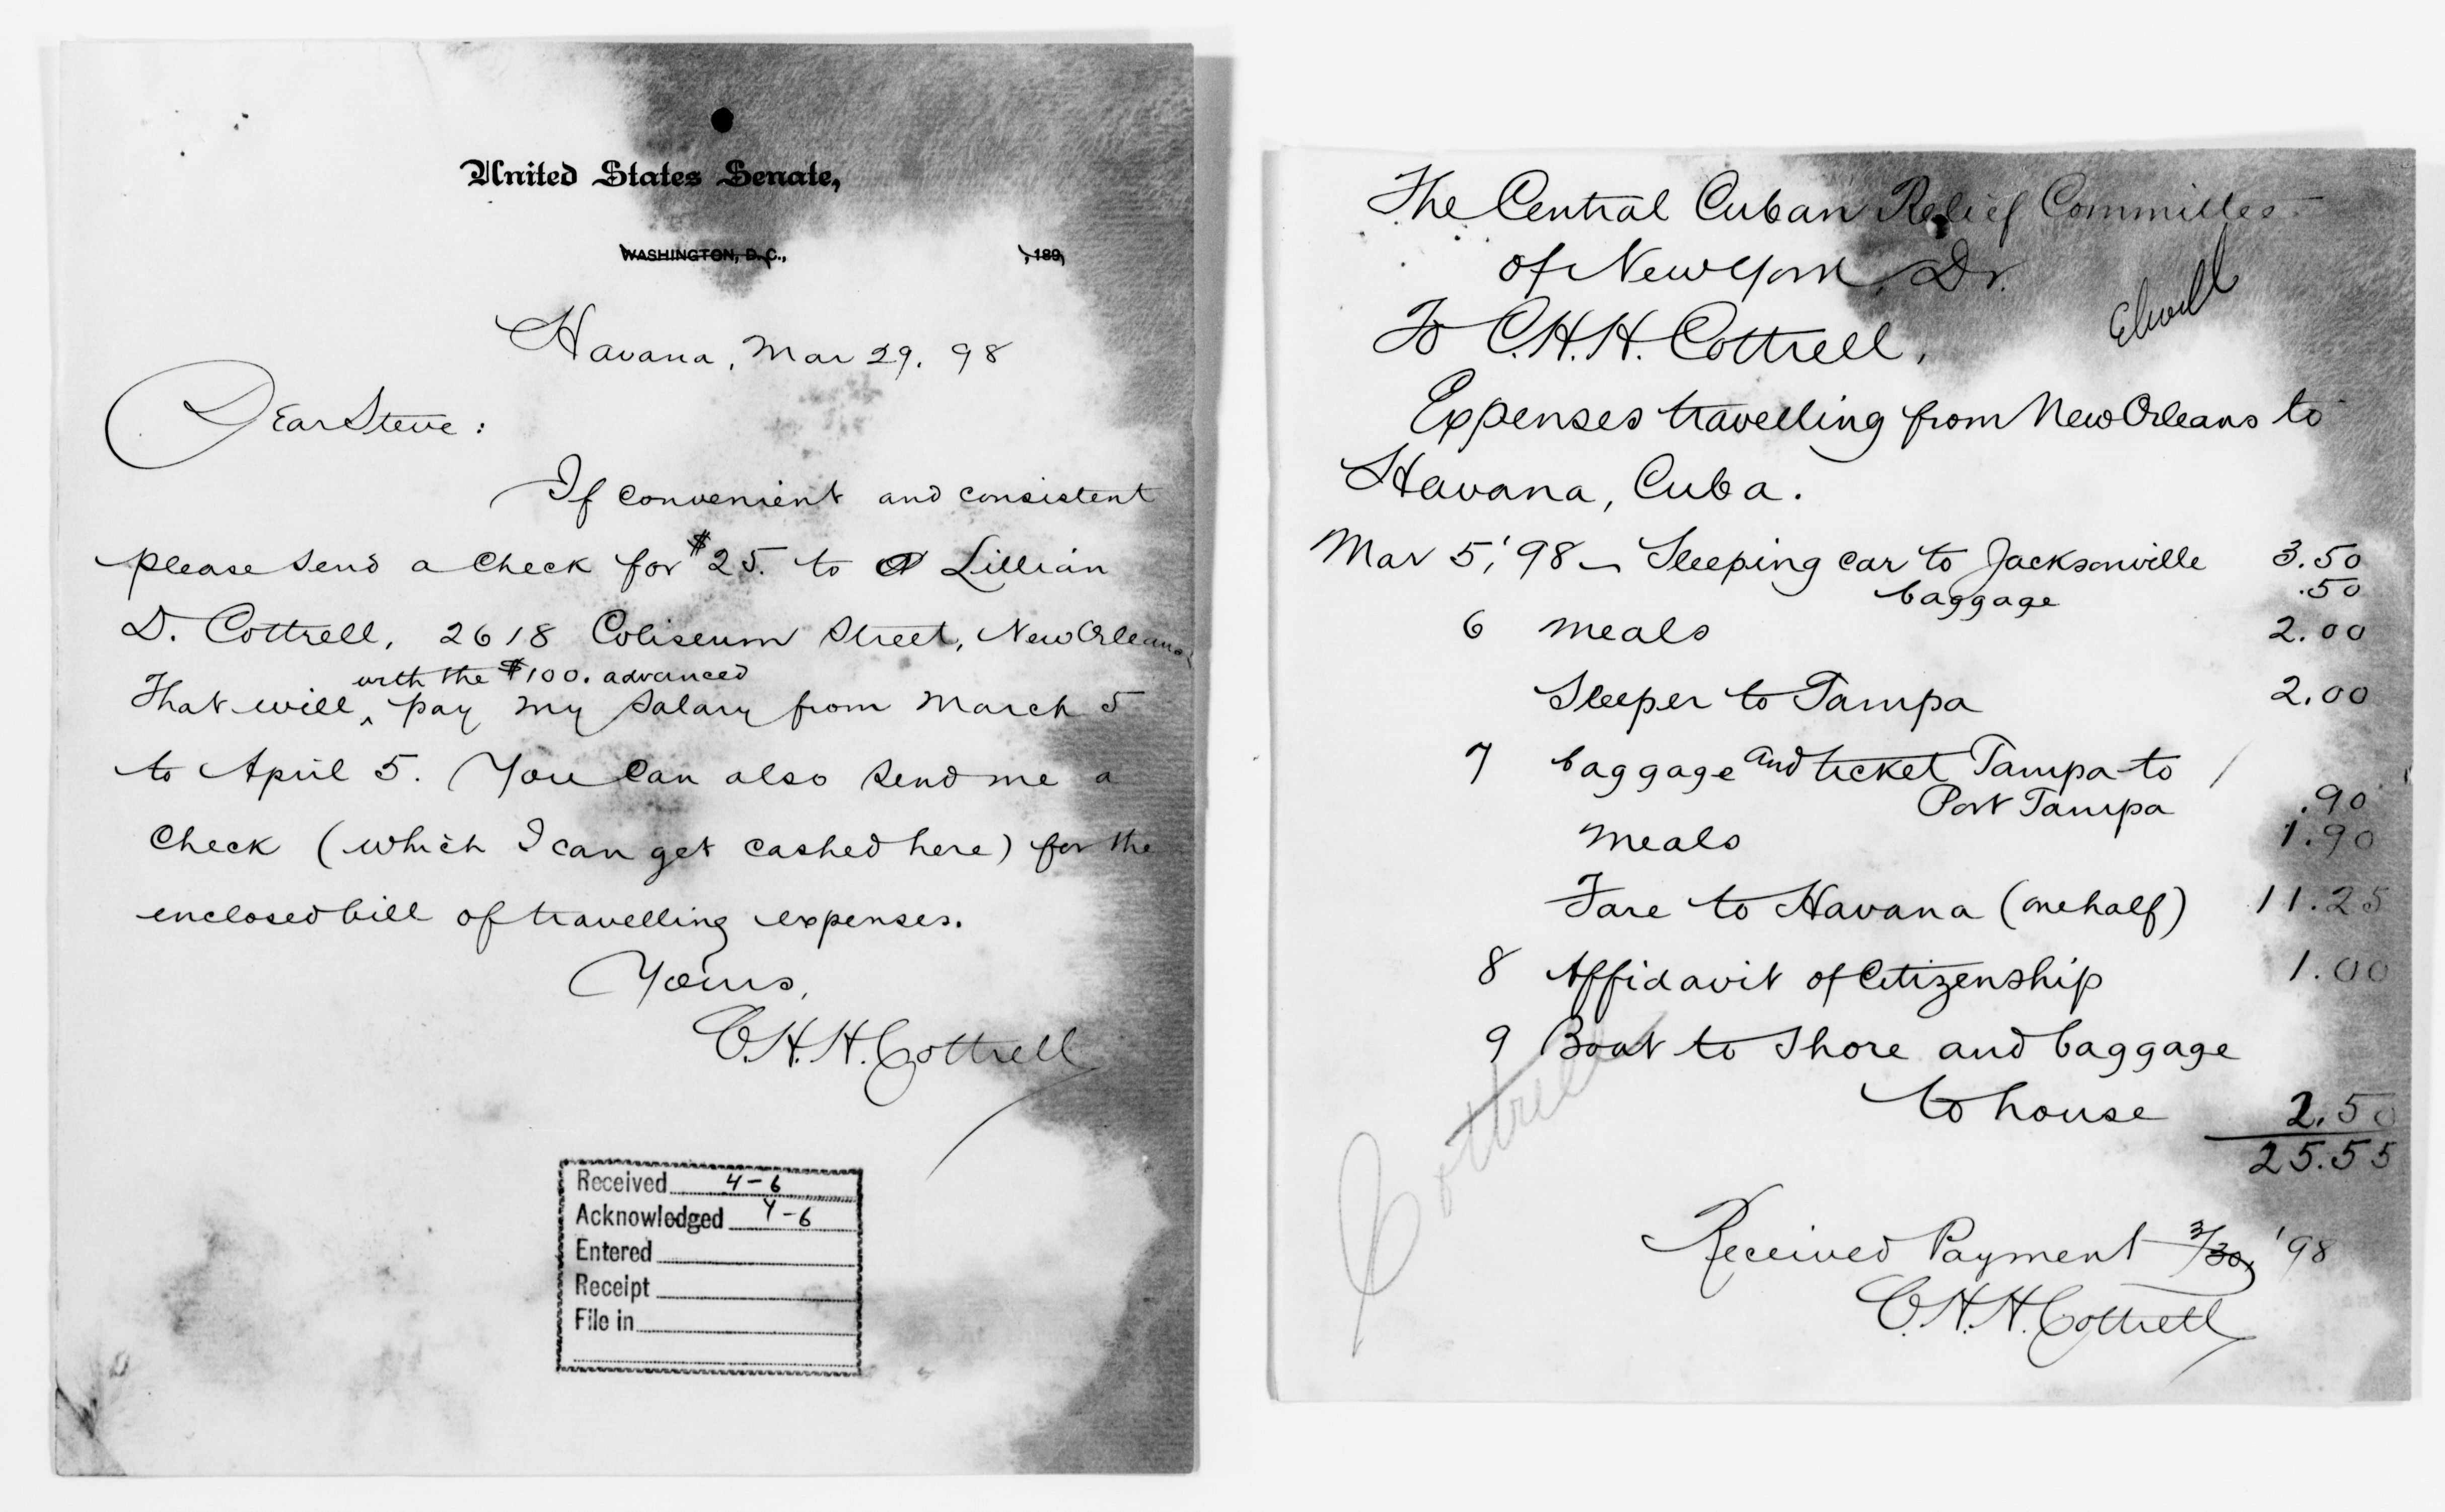 United States Senate,
WASHINGTON, D.C., , 189
Havana, Mar 29. 98
Dear Steve:
If convenient and consistent
please send a check for $25. to Lillian
D. Cottrell, 2618 Coliseum Street, New Orleans
with the $100. advanced
That will ^ pay my salary from March 5
to April 5. You can also send me a
check (which I can get cashed here) for the
enclosed bill of travelling expenses.
Yours,
C.H.H. Cottrell
Received 4-6
Acknowledged 4-6
Entered
Receipt
File in
The Central Cuban Relief Committee
of New York, Dr.
Elwell
To C.H.H. Cottrell,
Expenses travelling from New Orleans to
Havana, Cuba.
Mar 5, '98 – Sleeping car to Jacksonville 3.50
baggage .50
6 meals 2.00
Sleeper to Tampa 2.00
7 baggage and ticket Tampa to
Port Tampa .90
meals 1.90
Fare to Havana (one half) 11.25
8 Affidavit of Citizenship 1.00
9 Boat to shore and baggage
to house 2.50
25.55
Cottrell
Received Payment 3/30, '98
C.H.H. Cottrell